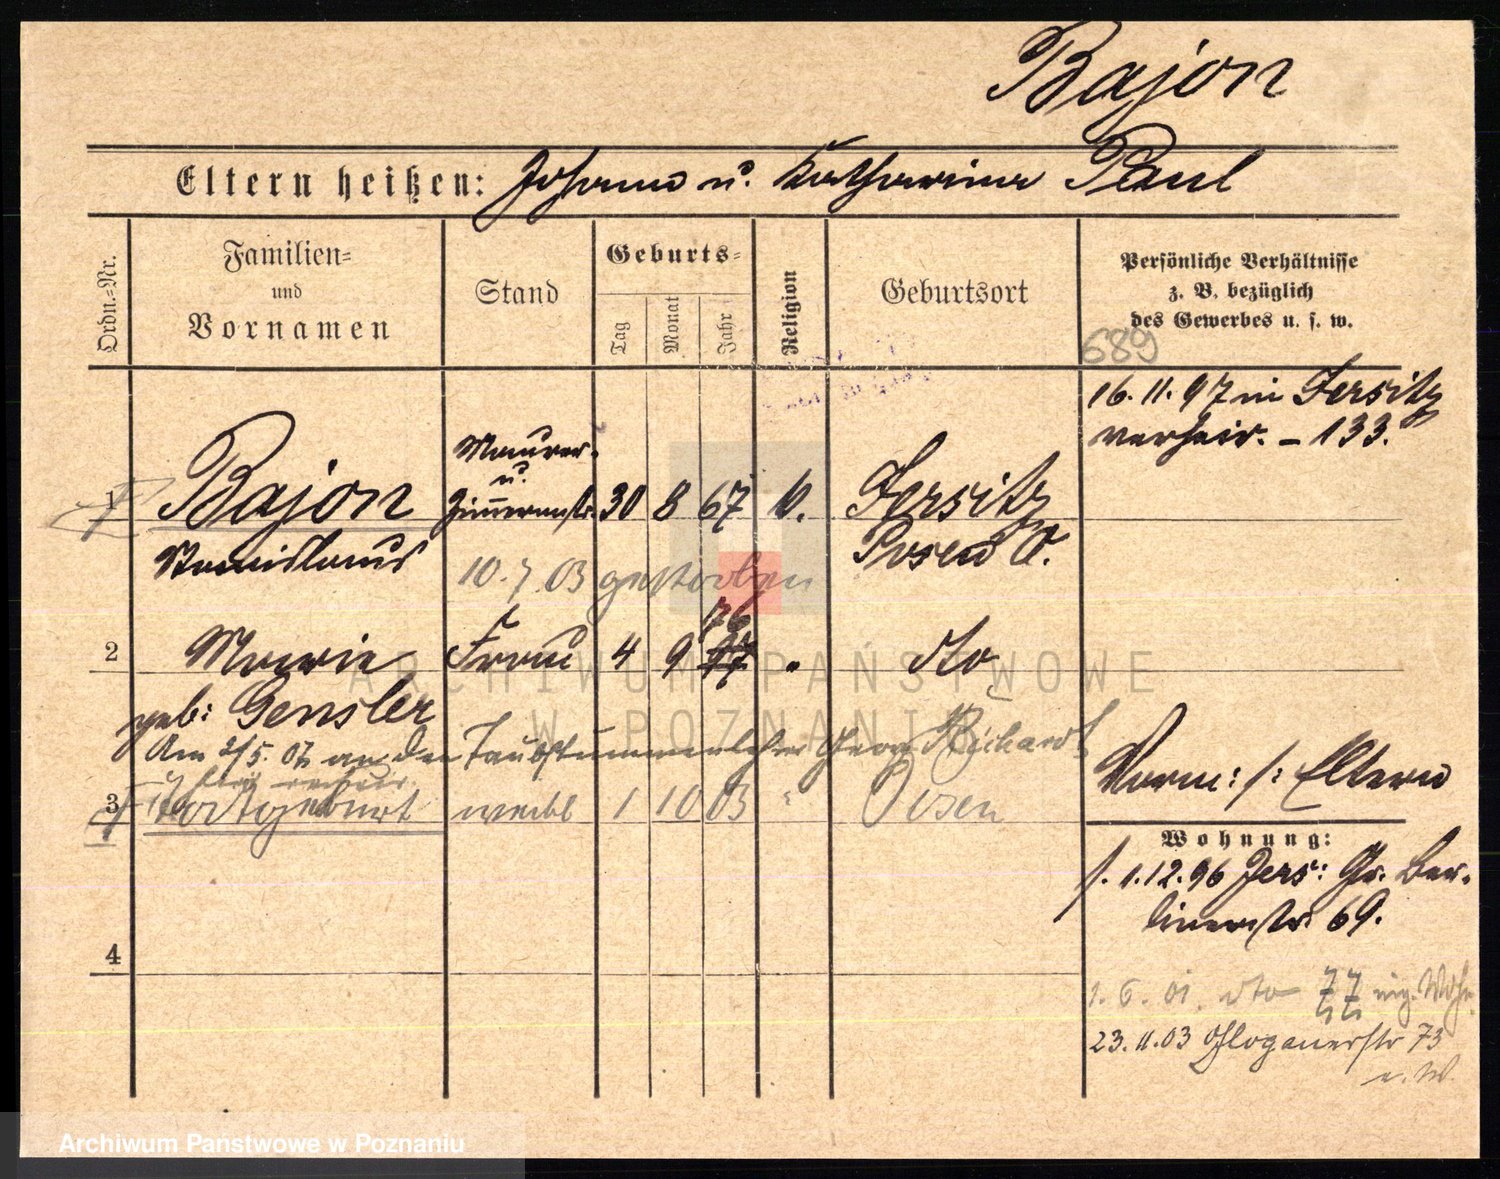 Bajon
Eltern heißen: Johann u. Katharina Paul
Ordn.-Nr.
Familien-
und
Vornamen
Stand
Geburts-
Tag
Monat
Jahr
Religion
Geburtsort
Persönliche Verhältnisse
z. B. bezüglich
des Gewerbes u. s. w.
689
16. 11. 97 in Jersitz
verheir. - 133.
1
Bajon
Stanislaus
Maurer-
u.
Zimmermstr.
30 8 67
Jersitz
Posen O.
10. 7 03 gestorben
2
Marie
geb: Gensler
Frau
4 9 76
77
"
dto
Am 2/5. 07 an den Taubstummenlehrer Georg Richard
3
Todtgeburt
weibl
1 10 03
"
Posen
Vorm: /: Eltern
Wohnung:
1.12.96 Jers: Gr. Ber-
linerstr. 69.
1. 6. 01. dto 77 eig. Wohn.
23. 11. 03 Glogauerstr 73
e. W.
4
ARCHIWUM PAŃSTWOWE
W POZNANIU
Archiwum Państwowe w Poznaniu